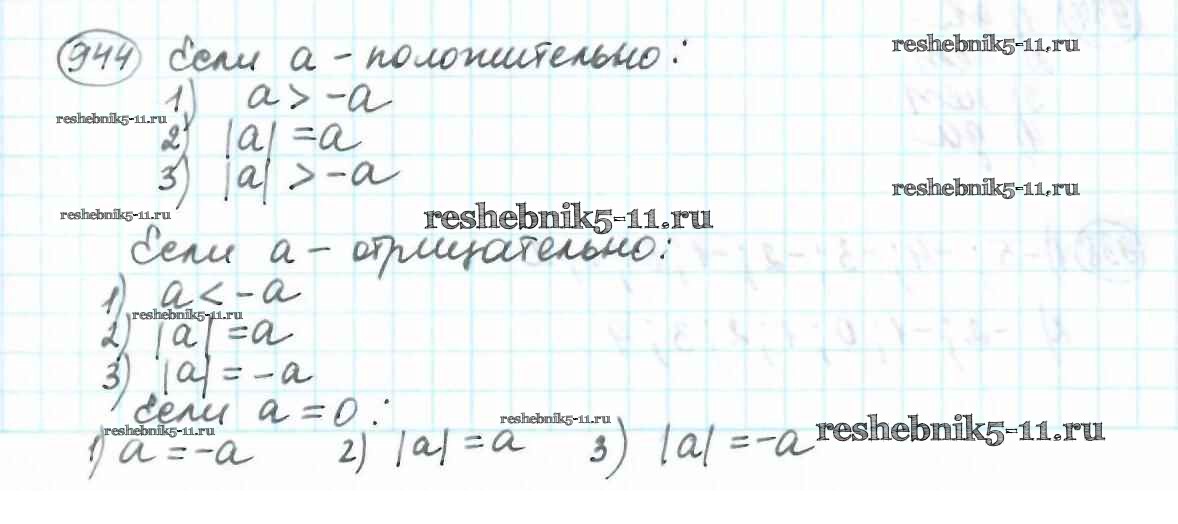 944 Если а - положительно:
reshebnik5-11.ru
1) a > -a
reshebnik5-11.ru
2) |a| = a
3) |a| > -a
reshebnik5-11.ru
reshebnik5-11.ru
reshebnik5-11.ru
Если а - отрицательно:
1) a < -a
reshebnik5-11.ru
2) |a| = a
3) |a| = -a
Если а = 0:
reshebnik5-11.ru
reshebnik5-11.ru
reshebnik5-11.ru
1) a = -a 2) |a| = a 3) |a| = -a